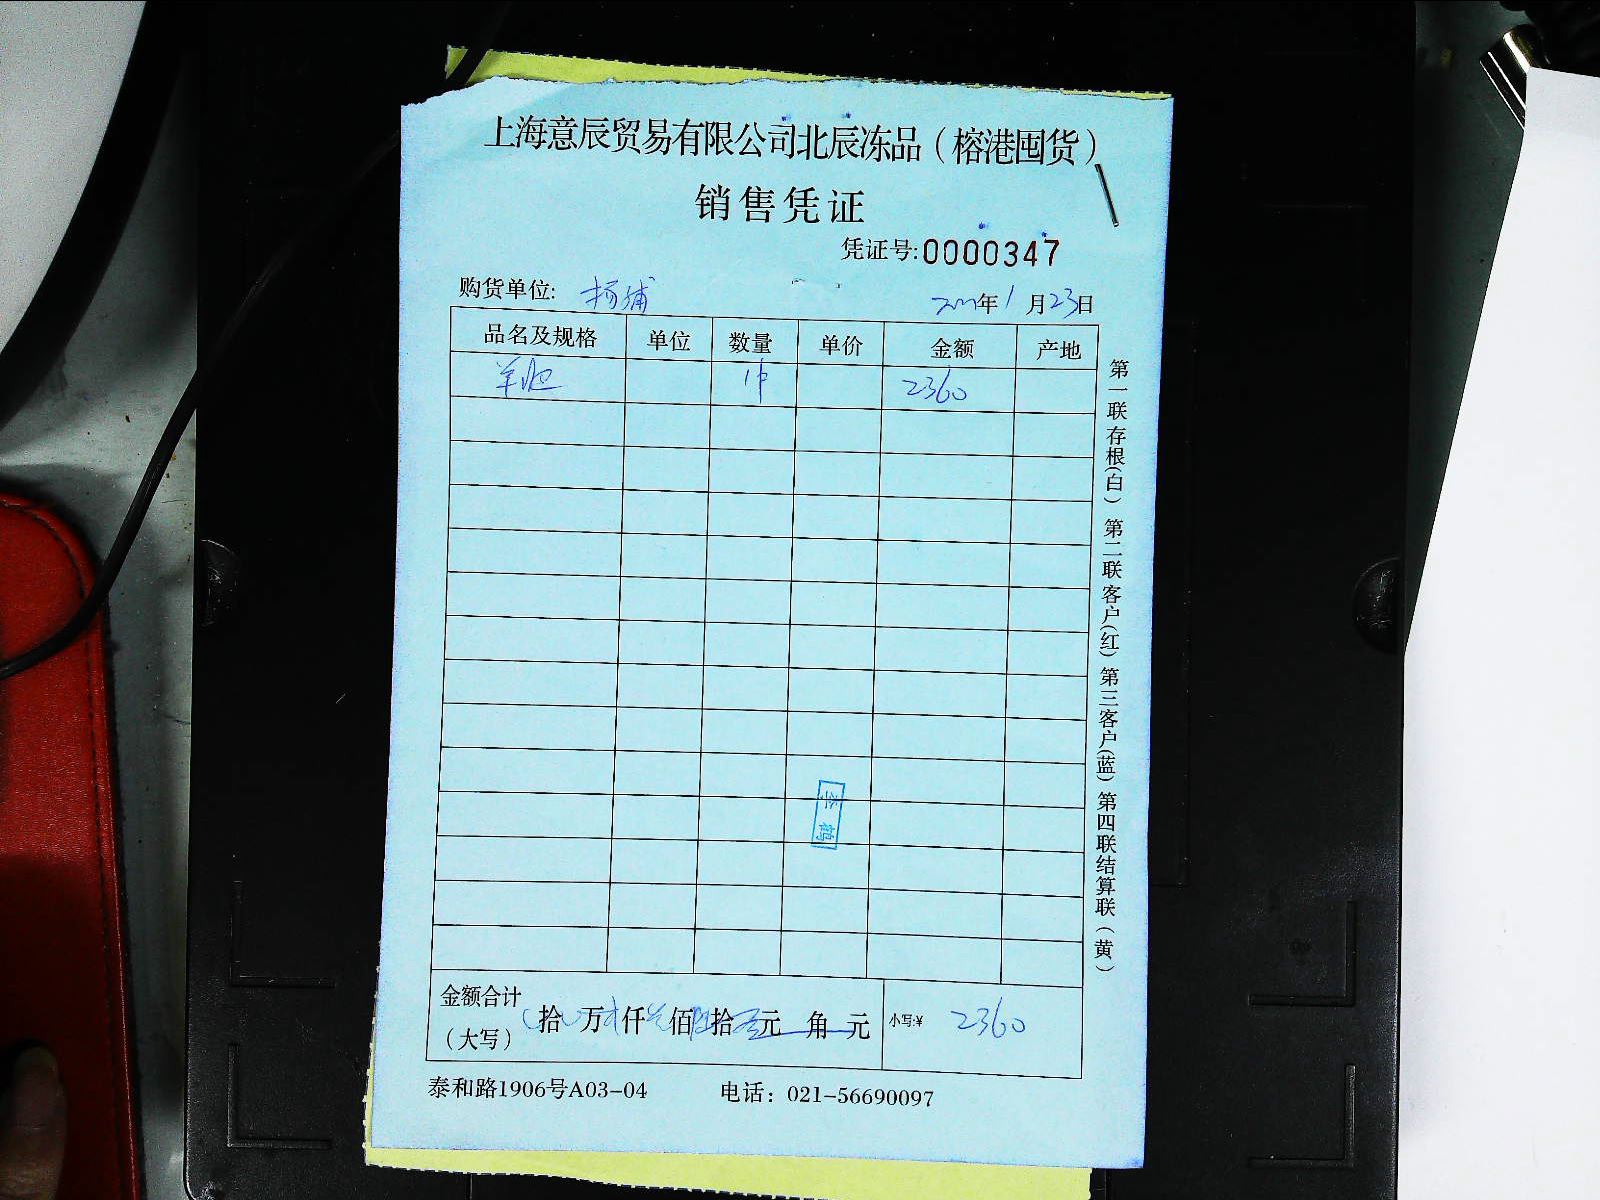 上海意辰贸易有限公司北辰冻品（榕港囤货）
销售凭证
凭证号:0000347
购货单位: 杨浦
年1月23日
品名及规格 单位 数量 单价 金额 产地
羊 1件 2360
李鹤
金额合计（大写） 拾 万 仟 佰 拾 元 角 元 小写:¥ 2360
泰和路1906号A03-04 电话：021-56690097
第一联存根(白) 第二联客户(红) 第三客户(蓝) 第四联结算联(黄)